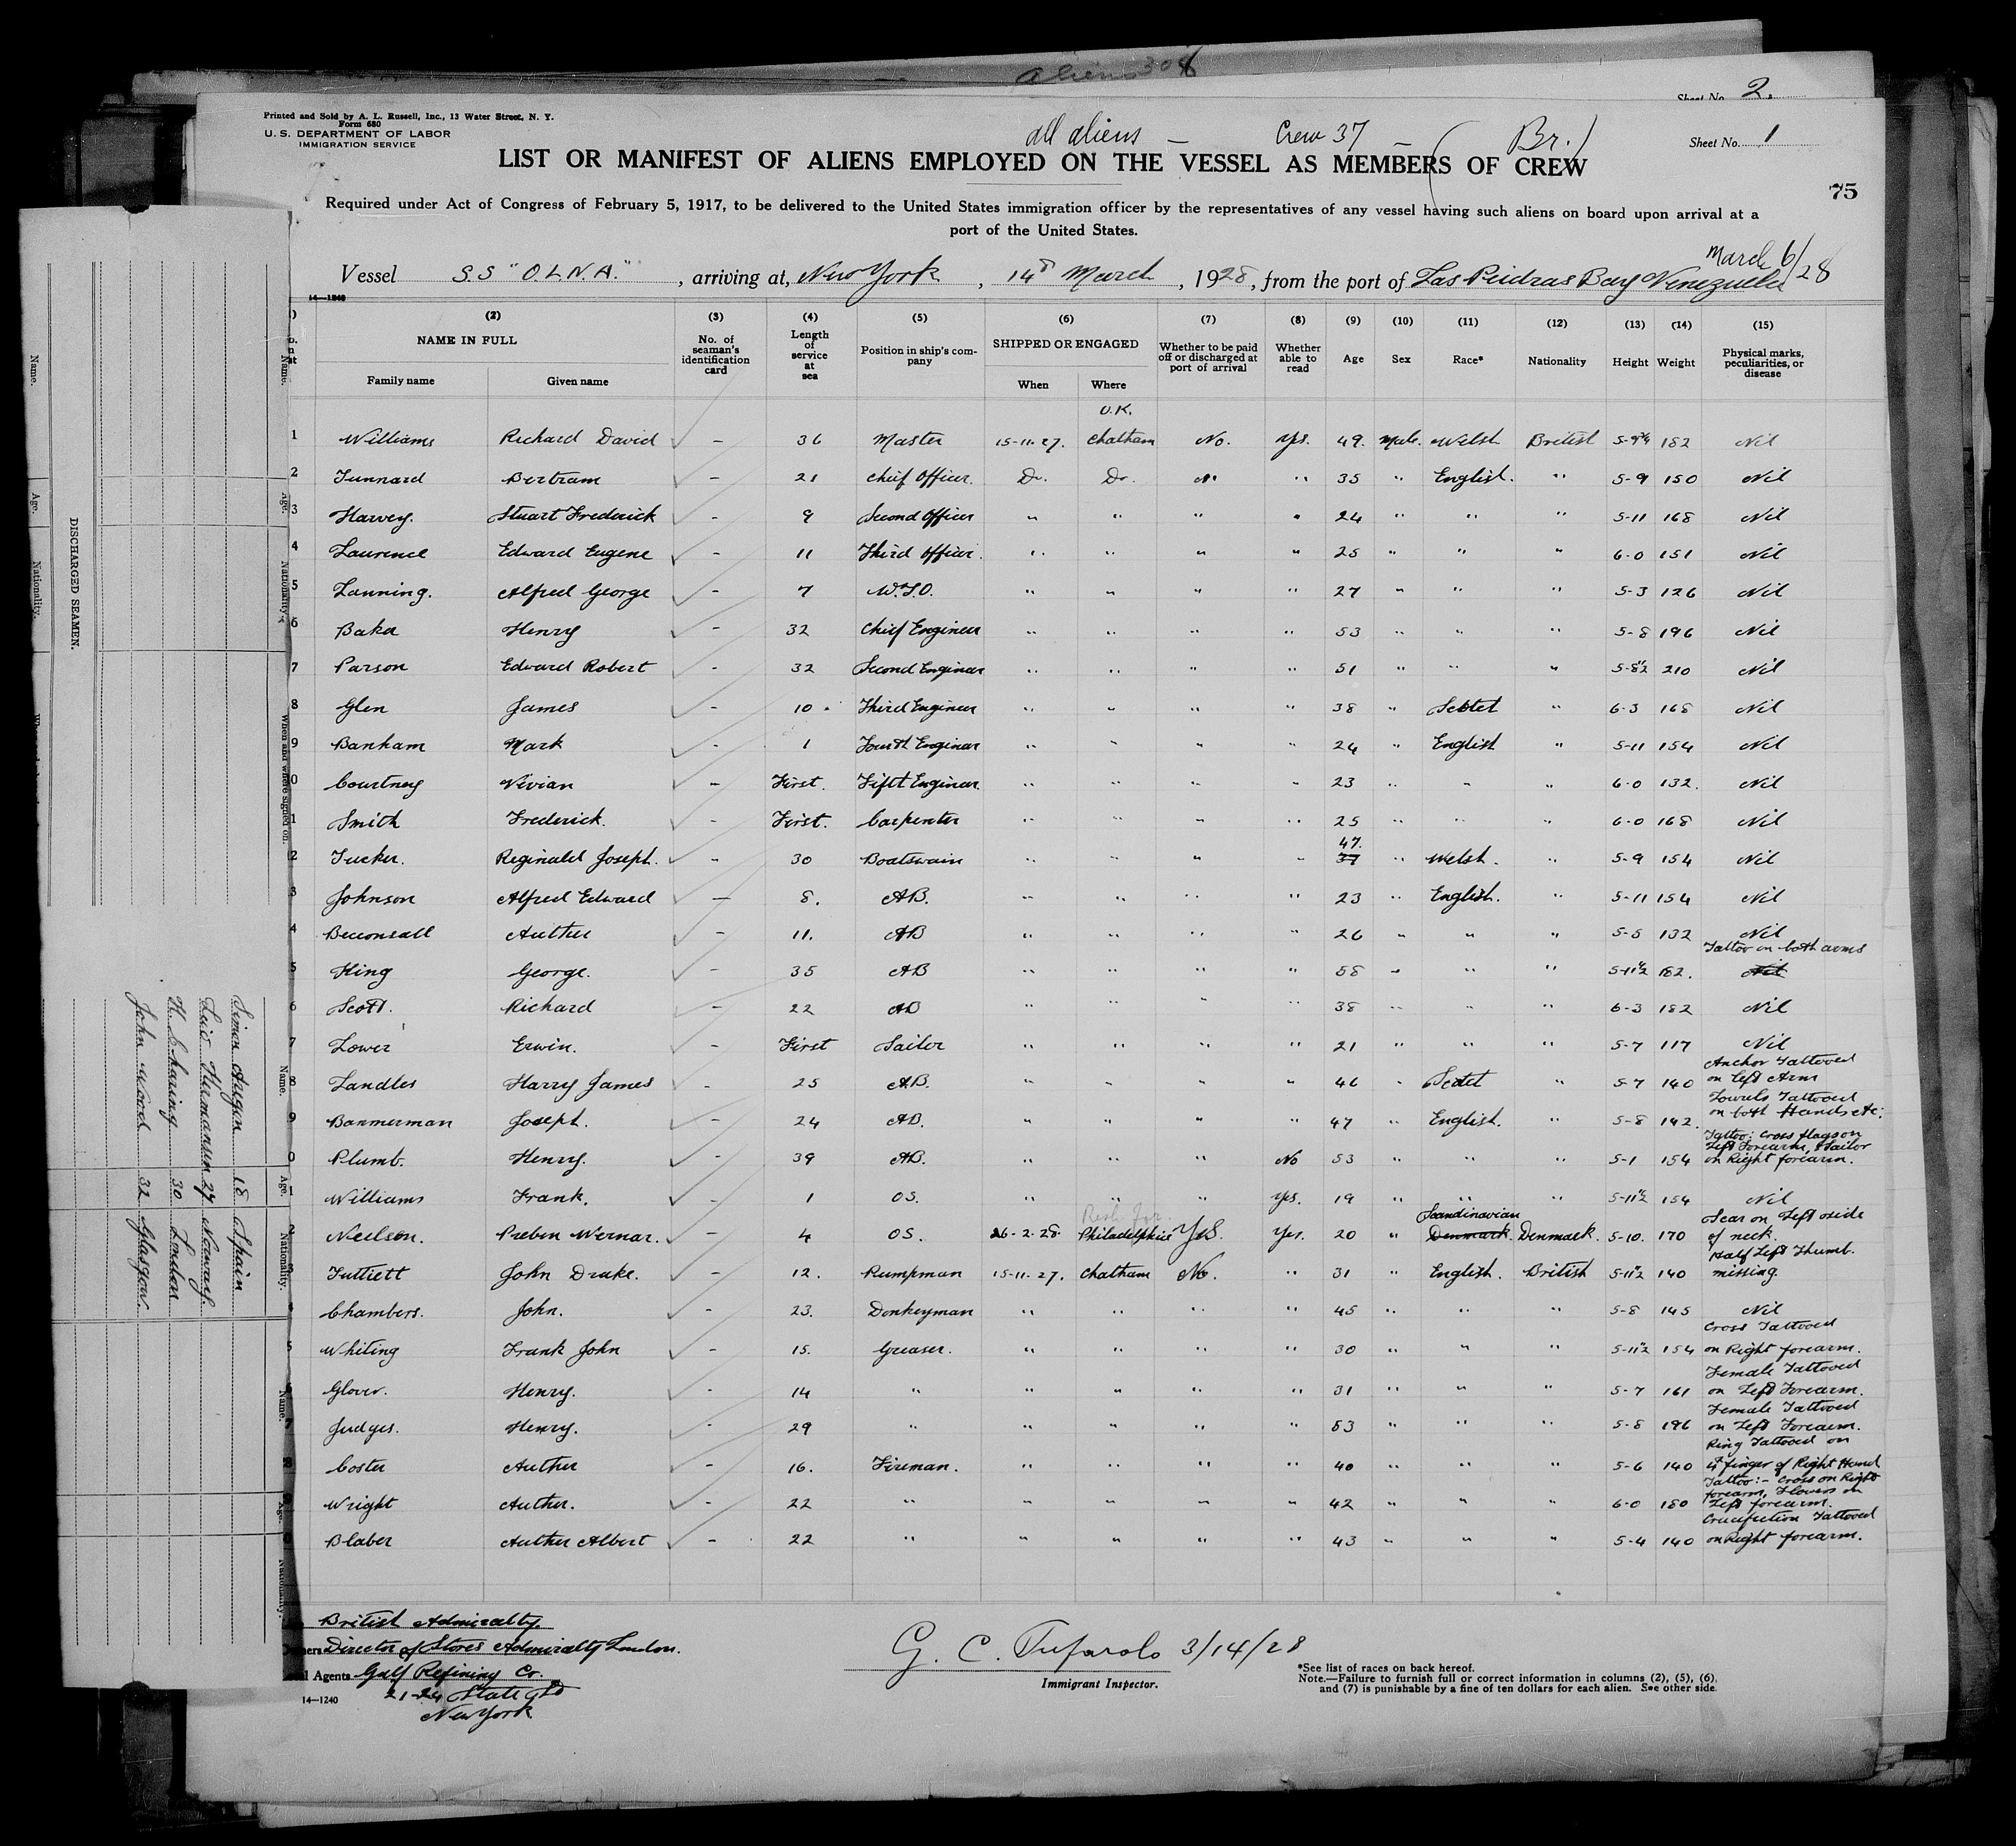 aliens 308
Sheet No. 2.
Printed and Sold by A. L. Russell, Inc., 13 Water Street, N. Y.
Form 680
U. S. DEPARTMENT OF LABOR
IMMIGRATION SERVICE
all aliens — Crew 37 — (Br.)
Sheet No. 1
LIST OR MANIFEST OF ALIENS EMPLOYED ON THE VESSEL AS MEMBERS OF CREW
75
Required under Act of Congress of February 5, 1917, to be delivered to the United States immigration officer by the representatives of any vessel having such aliens on board upon arrival at a
port of the United States.
March 6/28
Vessel S.S "OLNA." , arriving at, New York , 14 March , 1928, from the port of Las Peidras Bay Venezuela
14—1240
(2) (3) (4) (5) (6) (7) (8) (9) (10) (11) (12) (13) (14) (15)
NAME IN FULL No. of seaman's identification card Length of service at sea Position in ship's company SHIPPED OR ENGAGED Whether to be paid off or discharged at port of arrival Whether able to read Age Sex Race* Nationality Height Weight Physical marks, peculiarities, or disease
Family name Given name When Where
U.K.
1 Williams Richard David – 36 Master 15-11-27. Chatham No. Yes. 49. Male. Welsh British 182 Nil
2 Tunnard Bertram – 21 Chief Officer. Do. Do. " " 35 " English. " 5-9 150 Nil
3 Harvey. Stuart Frederick – 9 Second Officer " " " " 24 " " " 5-11 168 Nil
4 Laurence Edward Eugene – 11 Third Officer. " " " " 25 " " " 6-0 151 Nil
5 Lanning. Alfred George – 7 W.T.O. " " " " 27 " " " 5-3 126 Nil
6 Baker Henry – 32 Chief Engineer " " " " 53 " " " 5-8 196 Nil
7 Parson Edward Robert – 32 Second Engineer " " " " 51 " " " 5-8½ 210 Nil
8 Glen James – 10 Third Engineer " " " " 38 " Scotch " 6-3 168 Nil
9 Banham Mark – 1 Fourth Engineer " " " " 24 " English " 5-11 154 Nil
0 Courtney Vivian – First. Fifth Engineer. " " " " 23 " " " 6-0 132. Nil
1 Smith Frederick. – First. Carpenter " " " " 25 " " " 6-0 168 Nil
2 Tucker. Reginald Joseph. – 30 Boatswain " " " " 47. 37 " Welsh. " 5-9 154 Nil
3 Johnson Alfred Edward – 8. AB. " " " " 23 " English. " 5-11 154 Nil
4 Becconsall Auther – 11. AB " " " " 26 " " " 5-5 132 Nil
5 King George. – 35 AB " " " " 58 " " " 5-11½ 182. Tattoo on both arms Nil
6 Scott. Richard – 22 AB " " " " 38 " " " 6-3 182 Nil
7 Lower Erwin. – First Sailor " " " " 21 " " " 5-7 117 Nil
8 Landles Harry James – 25 AB. " " " " 46 " Scotch " 5-7 140 Anchor Tattooed on left Arm
9 Bannerman Joseph. – 24 AB. " " " " 47 " English. " 5-8 142. Tattooed on both Hands etc:
0 Plumb. Henry. – 39 AB. " " " No 53 " " " 5-1 154 Tattoo: Cross flags on Left Forearm, Sailor on Right forearm.
1 Williams Frank. – 1 OS. " " " Yes. 19 " " " 5-11½ 154 Nil
2 Neilson. Preben Wernar. – 4 OS. 26-2-28. Philadelphia Yes. Yes. 20 " Scandinavian Denmark. Denmark. 5-10. 170 Scar on Left side of neck.
3 Tuttiett John Drake. – 12. Pumpman 15-11-27. Chatham No. " 31 " English. British 5-11½ 140 Half Left Thumb. missing.
4 Chambers. John. – 23. Donkeyman " " " " 45 " " " 5-8 145 Nil
5 Whiting Frank John – 15. Greaser. " " " " 30 " " " 5-11½ 154 Cross Tattooed on Right forearm.
6 Glover. Henry. – 14 " " " " " 31 " " " 5-7 161 Female Tattooed on Left Forearm.
7 Judges. Henry. – 29 " " " " " 53 " " " 5-8 196 Female Tattooed on Left Forearm.
8 Coster Auther – 16. Fireman. " " " " 40 " " " 5-6 140 Ring Tattooed on 4th finger of Right Hand
9 Wright Auther. – 22 " " " " " 42 " " " 6-0 180 Tattoo:- Cross on Right forearm, Flowers on Left forearm.
0 Blaber Auther Albert – 22 " " " " " 43 " " " 5-4 140 Crucifiction Tattooed on Right forearm.
British Admiralty.
Director of Stores Admiralty London.
Agents Gulf Refining Co.
21-24 State St
New York
14—1240
G. C. Tufarolo 3/14/28
Immigrant Inspector.
*See list of races on back hereof.
Note.—Failure to furnish full or correct information in columns (2), (5), (6),
and (7) is punishable by a fine of ten dollars for each alien. See other side.
DISCHARGED SEAMEN.
Name. Age. Nationality. When and where signed on.
Simon Aragon 18 Spain
Hermansen 27 Norway.
30 London
John Wood 32 Glasgow.